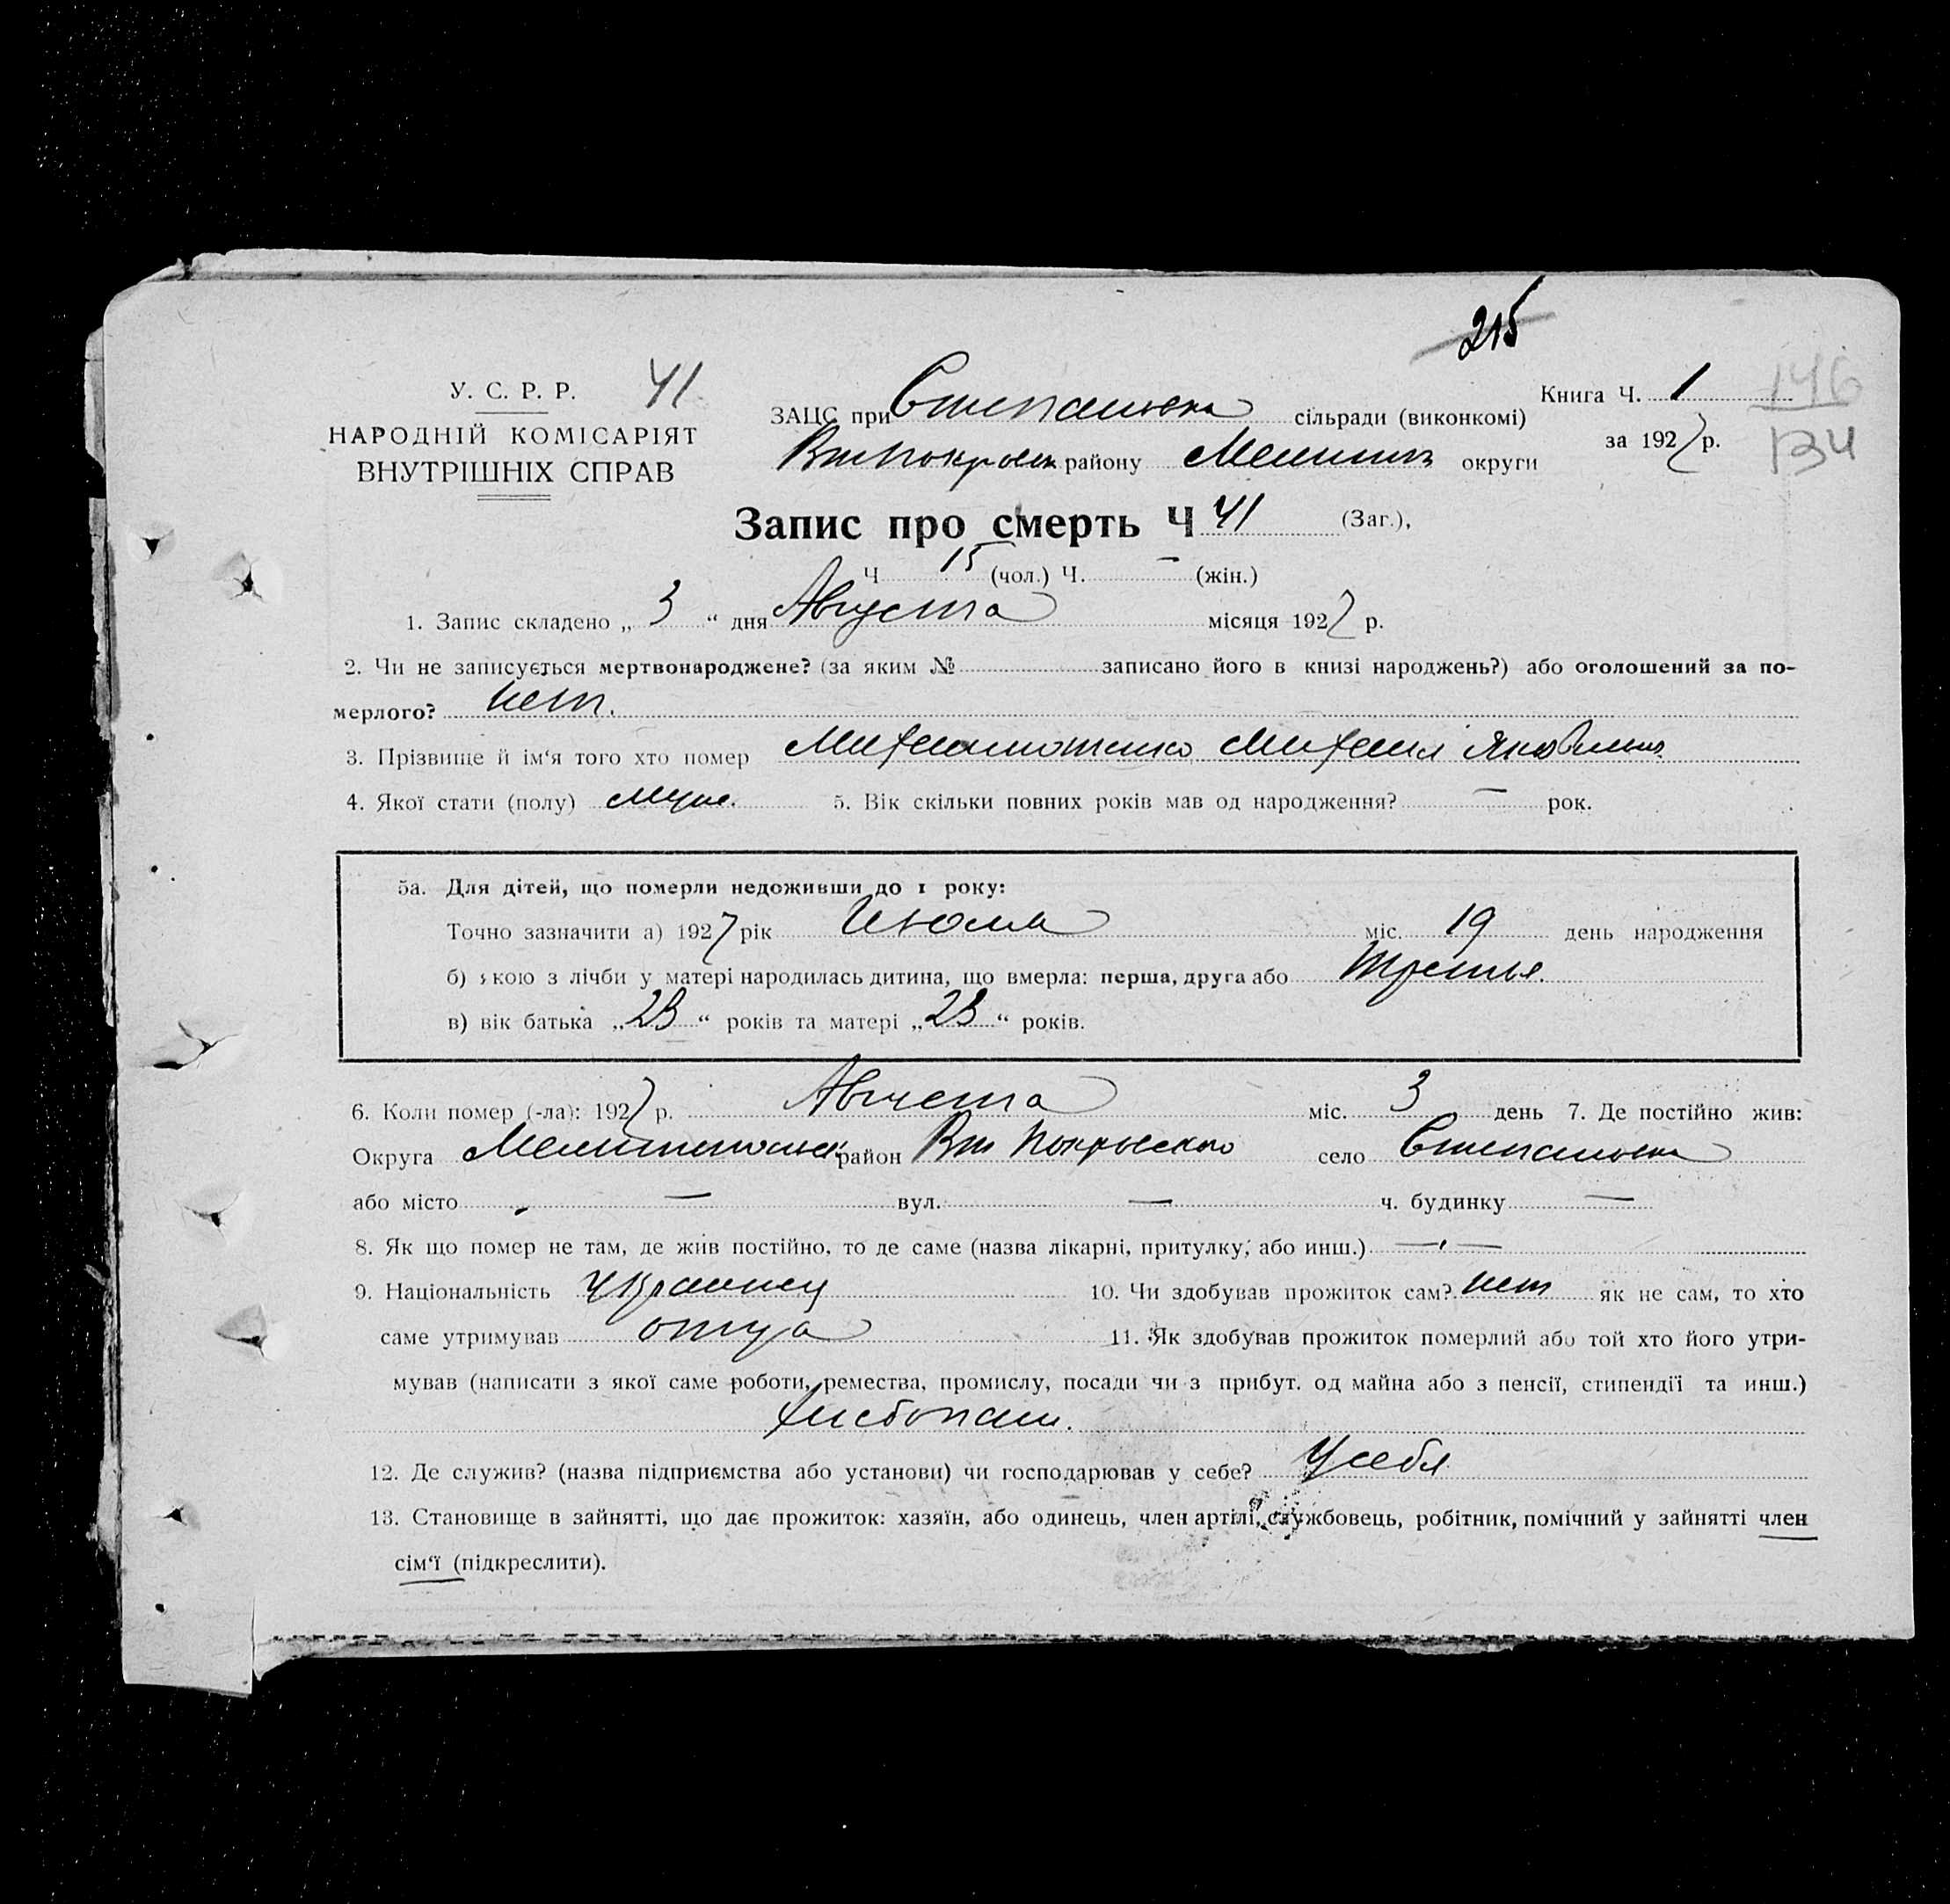 215
У. С. Р. Р. 41
НАРОДНІЙ КОМІСАРІЯТ
ВНУТРІШНІХ СПРАВ
ЗАЦС при сільради (виконкомі)
району округи
Книга Ч. 1
за 1927 р.
146
134
Запис про смерть Ч 41 (Заг.),
Ч 15 (чол.) Ч. — (жін.)
1. Запис складено „ 3 “ дня Августа місяця 1927 р.
2. Чи не записується мертвонароджене? (за яким № записано його в книзі народжень?) або оголошений за по-
мерлого? нет.
3. Прізвище й ім‘я того хто помер Михаил Яковлевич
4. Якої стати (полу) муж. 5. Вік скільки повних років мав од народження? — рок.
5а. Для дітей, що померли недоживши до 1 року:
Точно зазначити а) 1927 рік міс. 19 день народження
б) якою з лічби у матері народилась дитина, що вмерла: перша, друга або третья.
в) вік батька „23“ років та матері „23“ років.
6. Коли помер (-ла): 1927 р. Августа міс. 3 день 7. Де постійно жив:
Округа район село
або місто — вул. — ч. будинку —
8. Як що помер не там, де жив постійно, то де саме (назва лікарні, притулку, або инш.) —
9. Національність Украинец 10. Чи здобував прожиток сам? нет як не сам, то хто
саме утримував отца 11. Як здобував прожиток померлий або той хто його утри-
мував (написати з якої саме роботи, ремества, промислу, посади чи з прибут. од майна або з пенсії, стипендії та инш.)
хлебопаш.
12. Де служив? (назва підприємства або установи) чи господарював у себе? У себя
13. Становище в зайнятті, що дає прожиток: хазяїн, або одинець, член артілі, службовець, робітник, помічний у зайнятті член
сім‘ї (підкреслити).